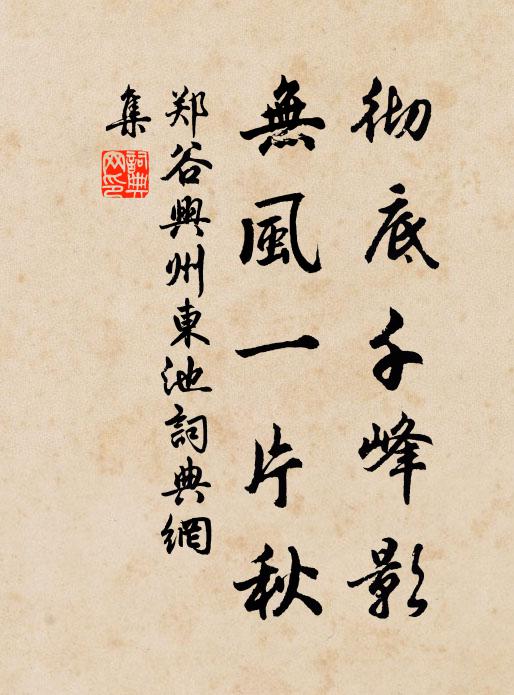 彻底千峰影
無風一片秋
郑谷興州東池詞典網
集
詞典网印